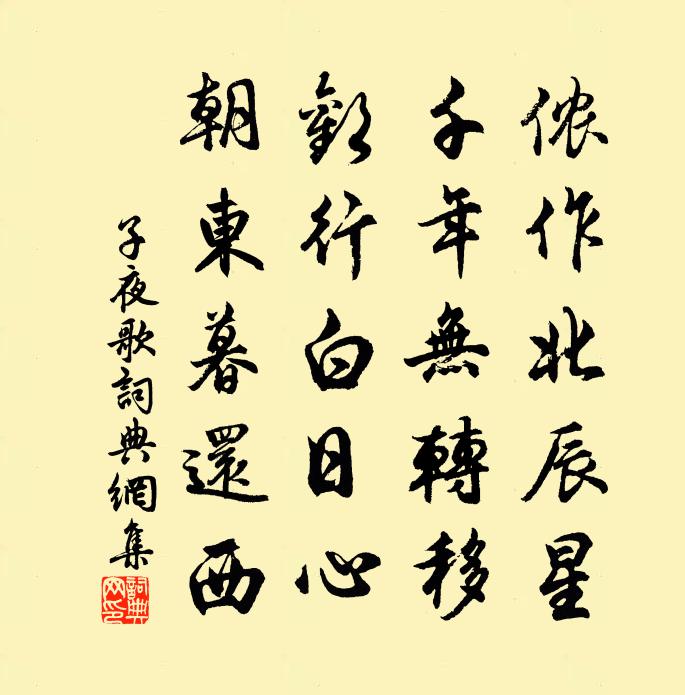 侬作北辰星
千年無轉移
歡行白日心
朝東暮還西
子夜歌詞典網集
詞典網印